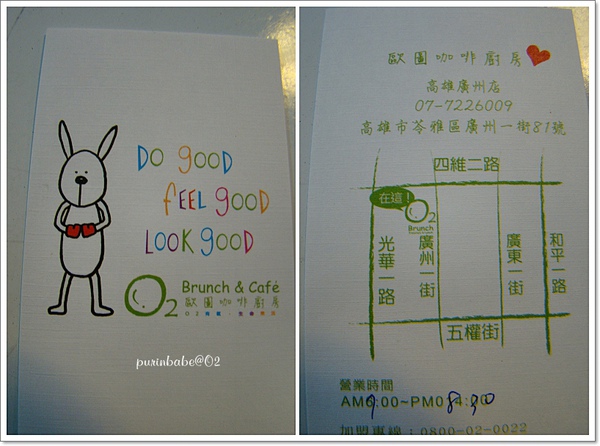 DO gOOD
fEEL gOOD
LOOK gOOD
O2 Brunch & Café
歐圖咖啡廚房
purinbabe@O2
歐圖咖啡廚房
高雄廣州店
07-7226009
高雄市苓雅區廣州一街81號
四維二路
在這!
O2
Brunch
光華一路
廣州一街
廣東一街
和平一路
五權街
營業時間
加盟專線:0800-02-0022